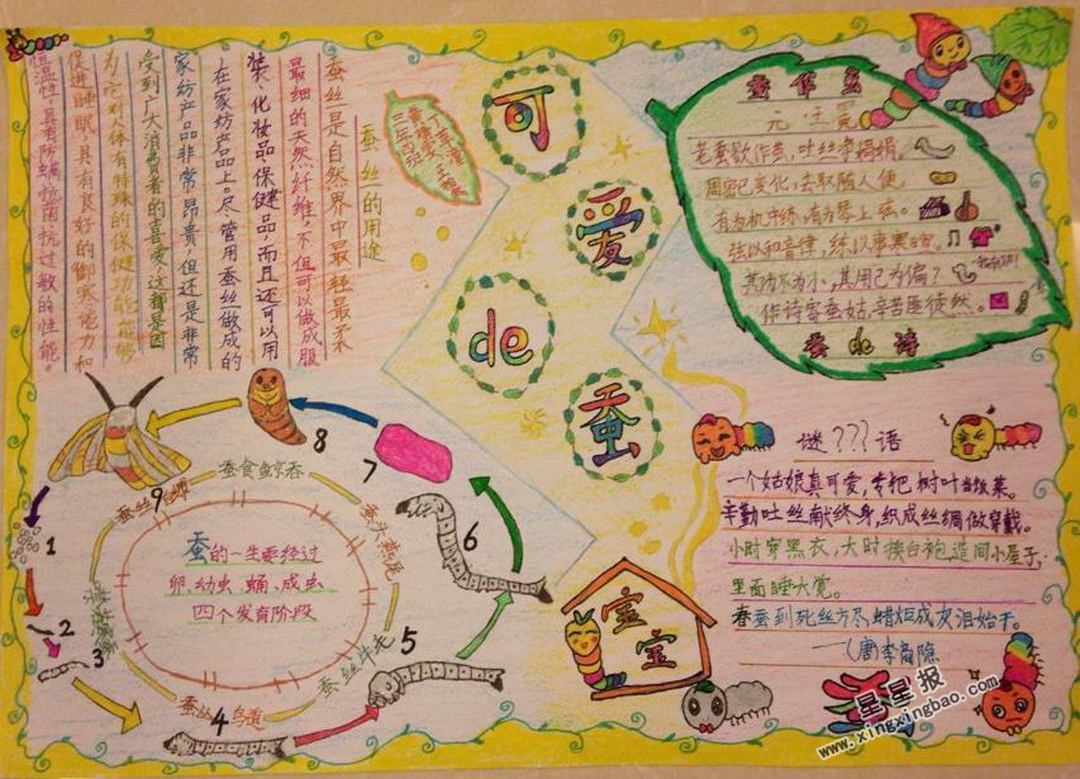 可
爱
de
蚕
宝
宝
蚕丝的用途
蚕丝是自然界中最轻最柔
最细的天然纤维,不但可以做成服
装、化妆品、保健品,而且还可以用
在家纺产品上。尽管用蚕丝做成的
家纺产品非常昂贵,但还是非常
受到广大消费者的喜爱,这都是因
为它对人体有特殊的保健功能能够
促进睡眠,具有良好的御寒能力和
恒温性,具有防螨抗菌抗过敏的性能。
三年四班
老蚕欲作茧,吐丝
周密已变化,去取随人便。
有为机中练,有为琴上弦。
弦以和音律,练以事寒暄。
其功不为小,其用已为偏?
作诗寄蚕姑,辛苦匪徒然。
蚕de诗
谜???语
一个姑娘真可爱,专把树叶当饭菜。
辛勤吐丝献终身,织成丝绸做穿戴。
小时穿黑衣,大时换白袍,造间小屋子,
里面睡大觉。
春蚕到死丝方尽,蜡炬成灰泪始干。
——(唐)李商隐
蚕的一生要经过
卵、幼虫、蛹、成虫
四个发育阶段
蚕食鲸吞
蚕头燕尾
蚕丝牛毛
蚕丛鸟道
1
2
3
4
5
6
7
8
9
星星报
www.xingxingbao.com